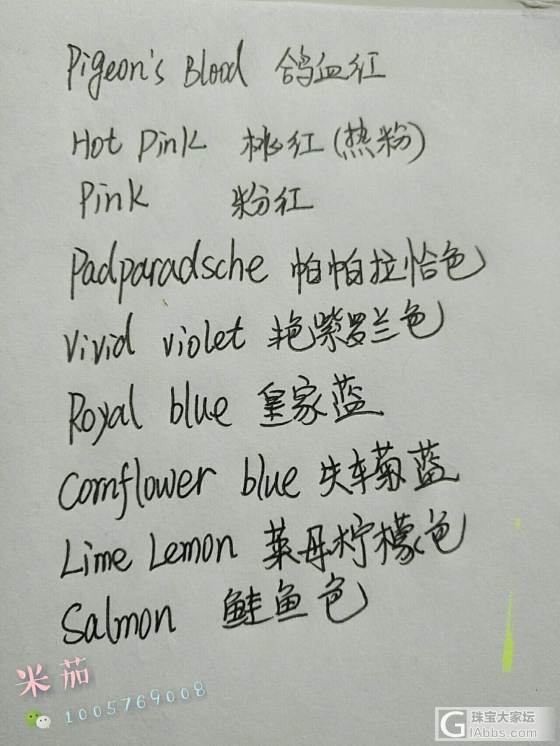 Pigeon's Blood 鸽血红
Hot Pink 桃红(热粉)
Pink 粉红
Padparadsche 帕帕拉恰色
Vivid violet 艳紫罗兰色
Royal blue 皇家蓝
Cornflower blue 失车菊蓝
Lime Lemon 莱母柠檬色
Salmon 鲑鱼色
米茄
1005769008
珠宝大家坛
GLAbbs.com